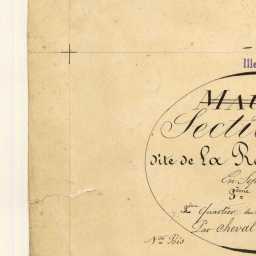 Ille
MAU
Secti
dité de La R
En
3ème
2ème Quartier du
Par Cheval
Nº Bis